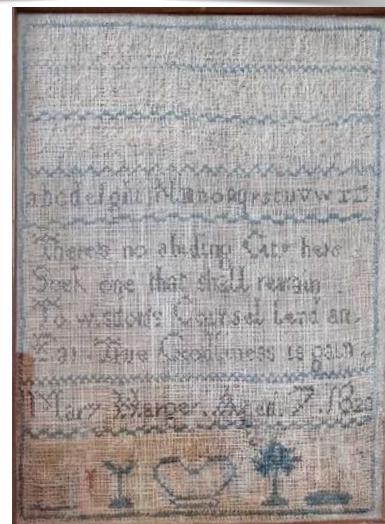 abcdefghijklmnopqrstuvwxz
There's no abiding City here
Seek one that shall remain
To wisdom's Counsel lend an
Ear True Goodness is gain
Mary Harper. Aged. 7. 1820